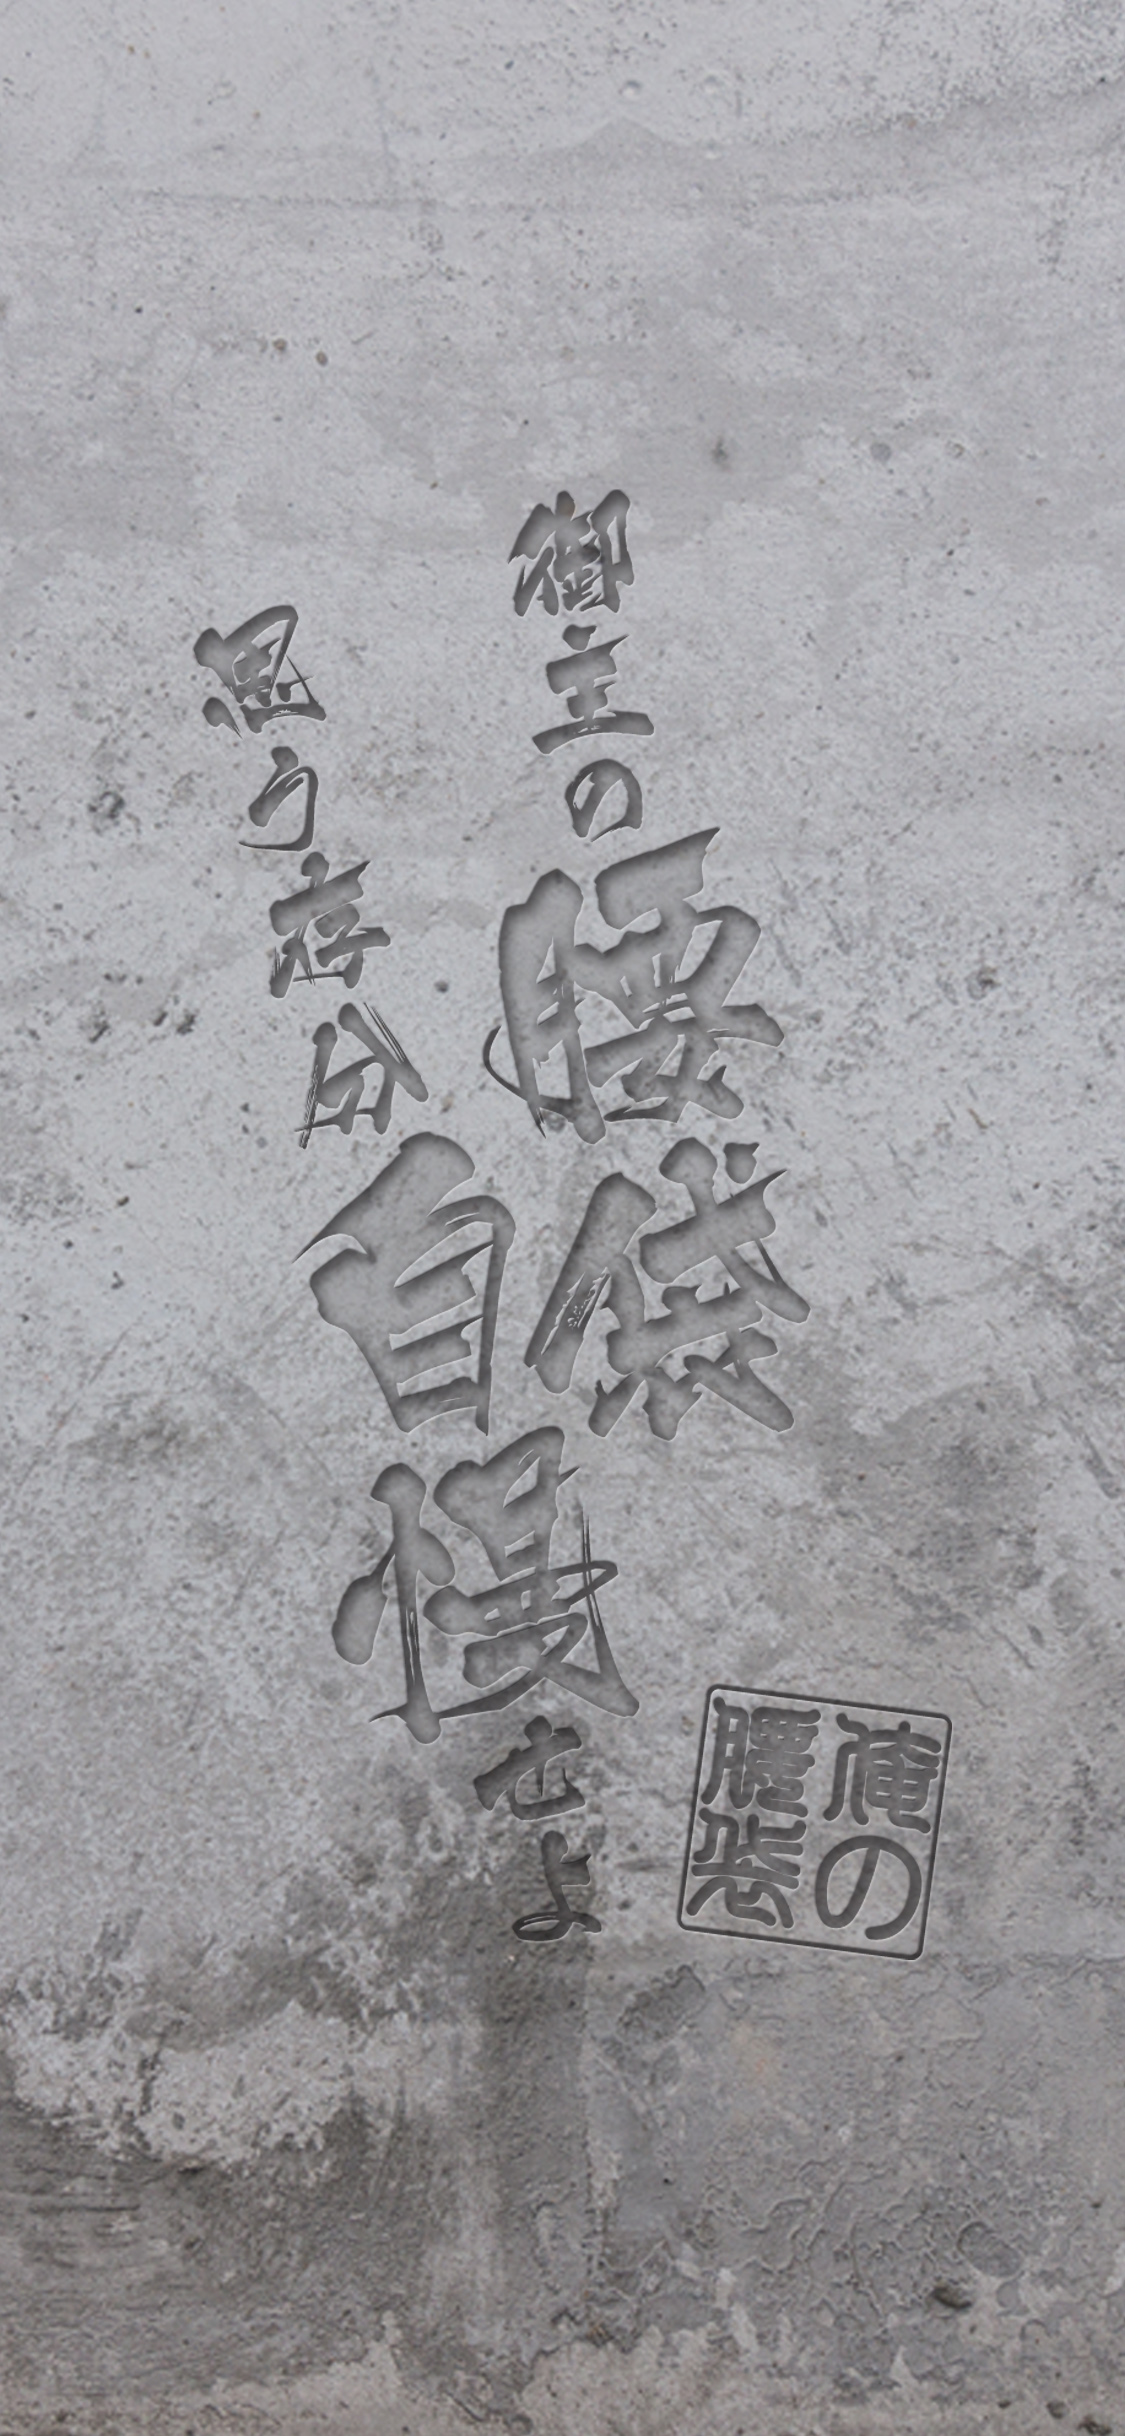 御主の腰袋
思う存分
自慢せよ
俺の
腰袋